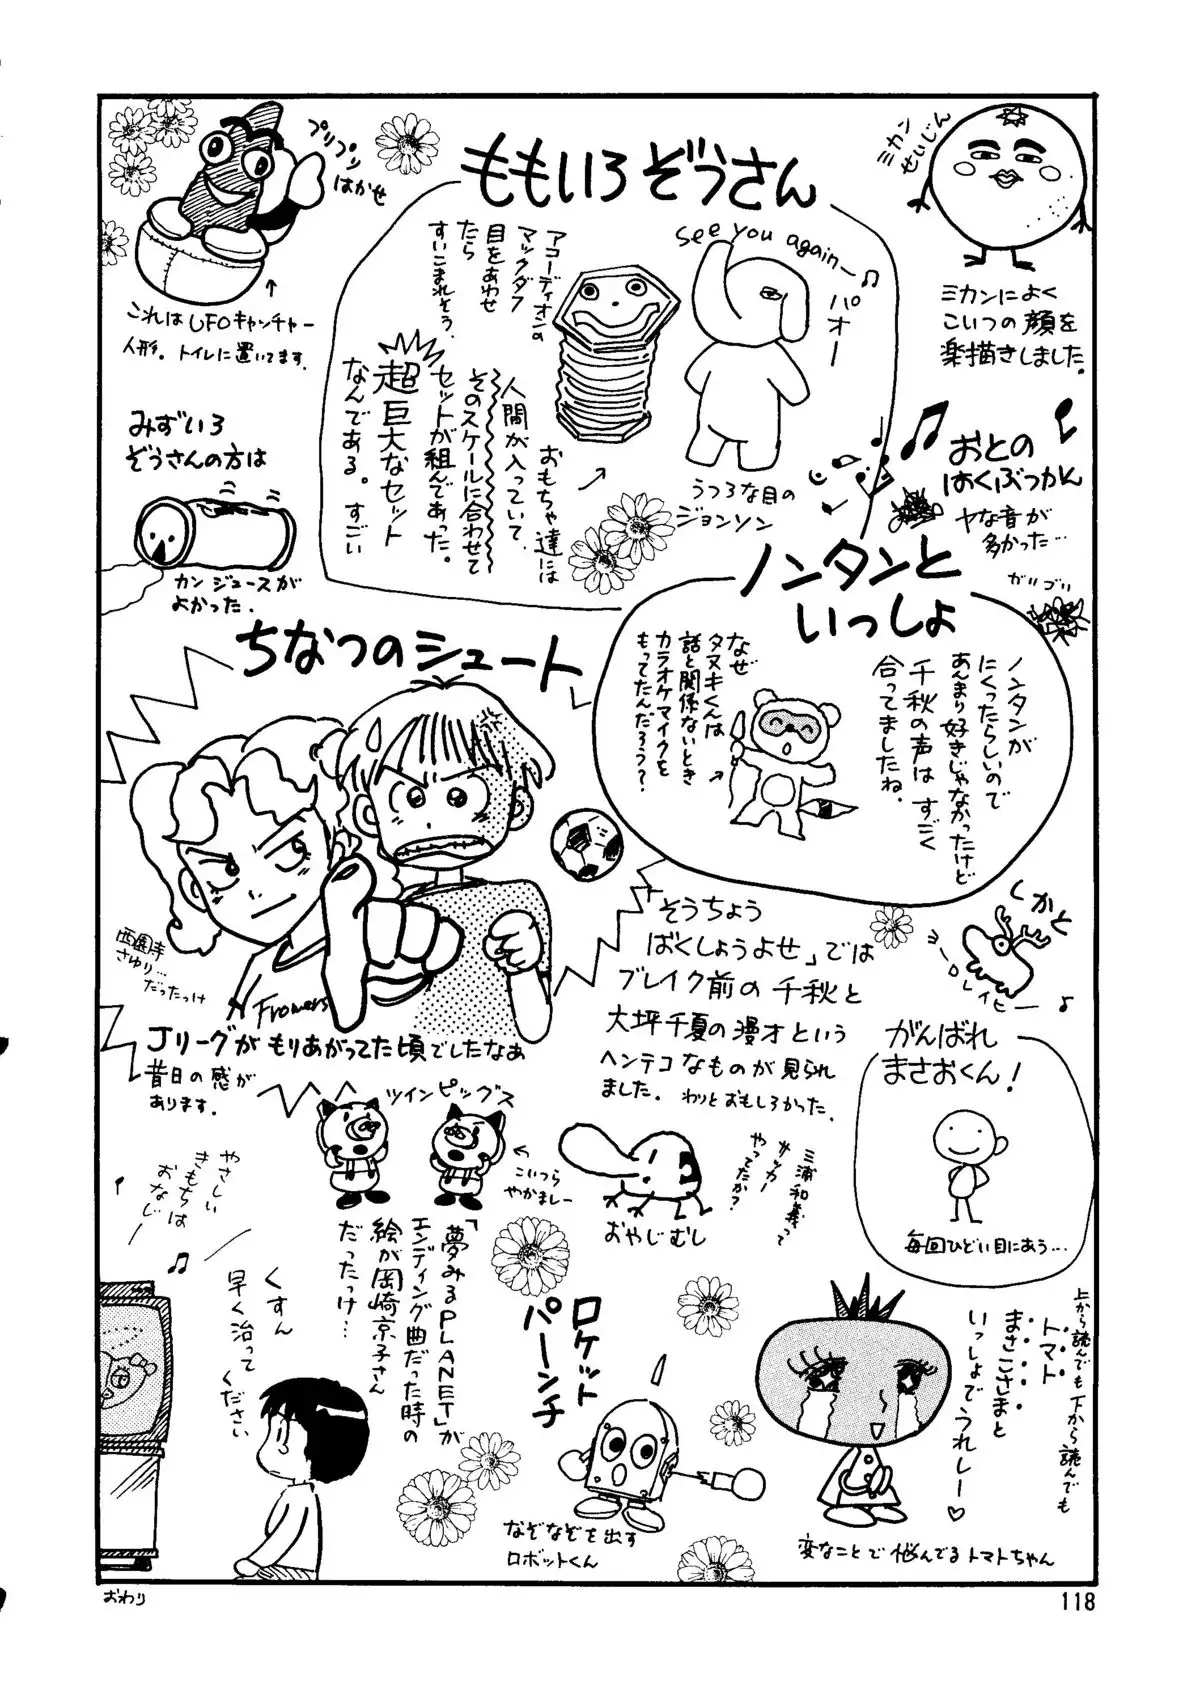 ももいろぞうさん
プリプリ
はかせ
これはUFOキャッチャー
人形。トイレに置いてます。
アコーディオンの
マックダフ
目をあわせ
たら
すいこまれそう。
see you again—♫
パオー
うつろな目の
ジョンソン
おもちゃ達には
人間が入っていて、
そのスケールに合わせて
セットが組んであった。
超巨大なセット
なんである。すごい
ミカン
せいじん
ミカンによく
こいつの顔を
楽描きしました。
みずいろ
ぞうさんの方は
カンジュースが
よかった.
おとの
はくぶつかん
ヤな音が
多かった…
ガリゴリ
ノンタンと
いっしょ
ノンタンが
にくったらしいので
あんまり好きじゃなかったけど
千秋の声は すごく
合ってましたね.
なぜ
タヌキくんは
話と関係ないとき
カラオケマイクを
もってたんだろう?
ちなつのシュート
西園寺
さゆり…
だったっけ
Frowers
Jリーグが もりあがってた頃でしたなぁ
昔日の感が
あります.
「そうちょう
ばくしょうよせ」では
ブレイク前の千秋と
大坪千夏の漫才という
ヘンテコなものが見られ
ました. わりとおもしろかった.
くかと
レイヒー♪
がんばれ
まさおくん!
毎回ひどい目にあう…
ツインピッグス
こいつら
やかましー
おやじむし
三浦和義って
サッカー
やってたか?
「夢みるPLANET」が
エンディング曲だった時の
絵が岡崎京子さん
だったっけ…
やさしい
きもちは
おなじー
♫
くすん
早く治って
ください
ロケット
パーンチ
なぞなぞを出す
ロボットくん
上から読んでも下から読んでも
トマト
まさこさまと
いっしょでうれしー♡
変なことで悩んでるトマトちゃん
おわり
118